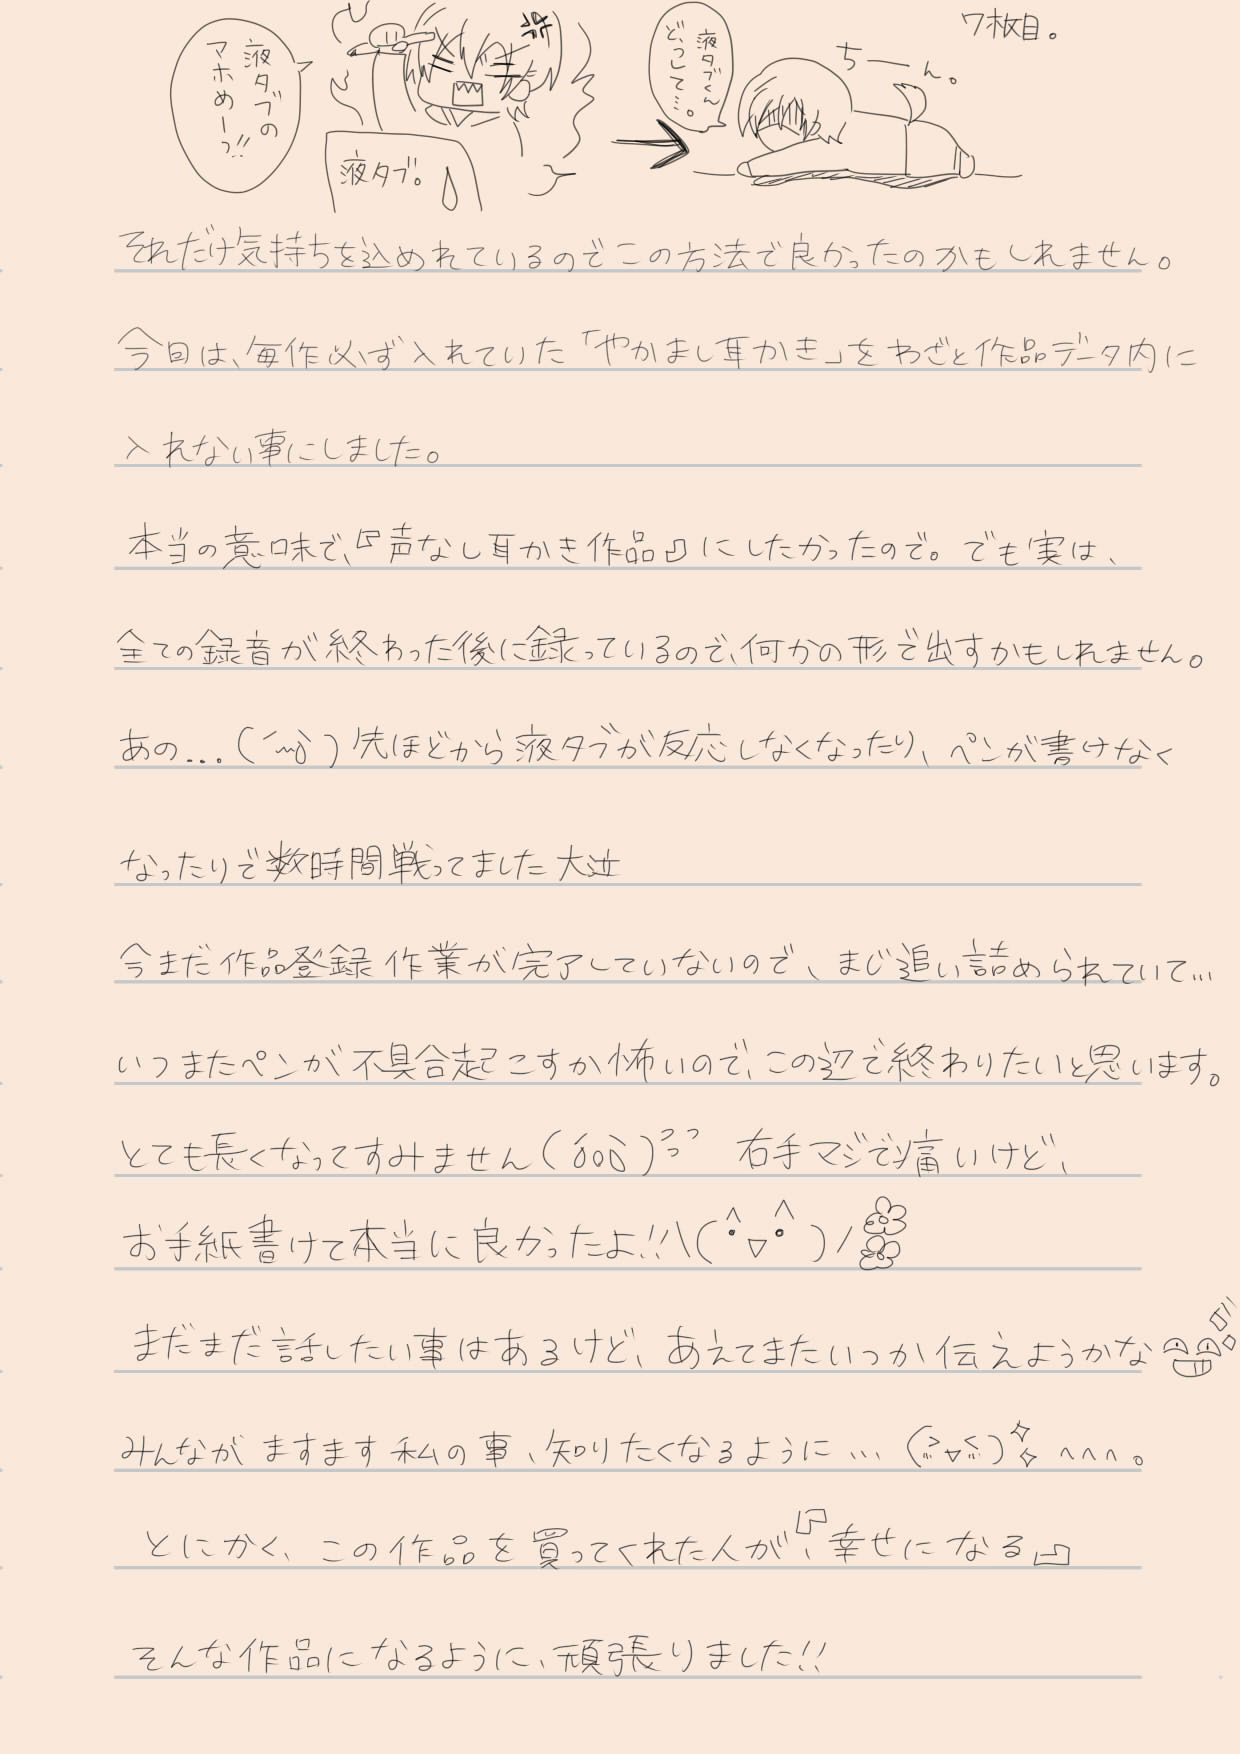 7枚目。
液タブの
マホめーっ!!
液タブ。
液タブくん
どうして…。
ちーん。
それだけ気持ちを込めれているのでこの方法で良かったのかもしれません。
今回は、毎作必ず入れていた「やかまし耳かき」をわざと作品データ内に
入れない事にしました。
本当の意味で、『声なし耳かき作品』にしたかったので。でも実は、
全ての録音が終わった後に録っているので、何かの形で出すかもしれません。
あの...(´ㅠ`)先ほどから液タブが反応しなくなったり、ペンが書けなく
なったりで数時間戦ってました大泣
今まだ作品登録作業が完了していないので、まじ追い詰められていて…
いつまたペンが不具合起こすか怖いので、この辺で終わりたいと思います。
とても長くなってすみません 右手マジで痛いけど、
お手紙書けて本当に良かったよ!!\(^・▽・^)/
まだまだ話したい事はあるけど、あえてまたいつか伝えようかな
みんながますます私の事、知りたくなるように…(>▽<) ^^^。
とにかく、この作品を買ってくれた人が、『幸せになる』
そんな作品になるように、頑張りました!!